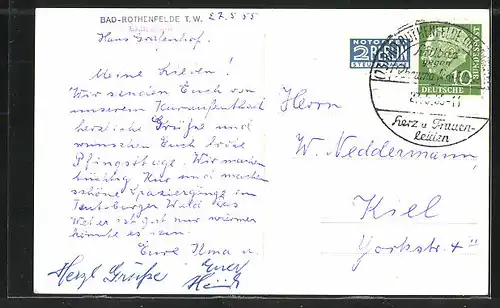 BAD-ROTHENFELDE T.W. 27.5.55
Haus Grafenhof.
Meine Lieben!
Wir senden Euch von
unserem Kuraufenthalt
herzliche Grüße und
wünschen Euch frohe
Pfingsttage. Wir machen
tüchtig Kur und machen
schöne Spaziergänge im
Teutoburger Wald. Das
Wetter ist gut nur wärmer
könnte es sein.
Eure Ilma u.
Herzl. Grüße Euer
NOTOPFER
2 BERLIN
STEUERMARKE
10
DEUTSCHE
ROTHENFELDE
Herz u. Frauen-
leiden
Herrn
W. Neddermann,
Kiel
Yorkstr. 4